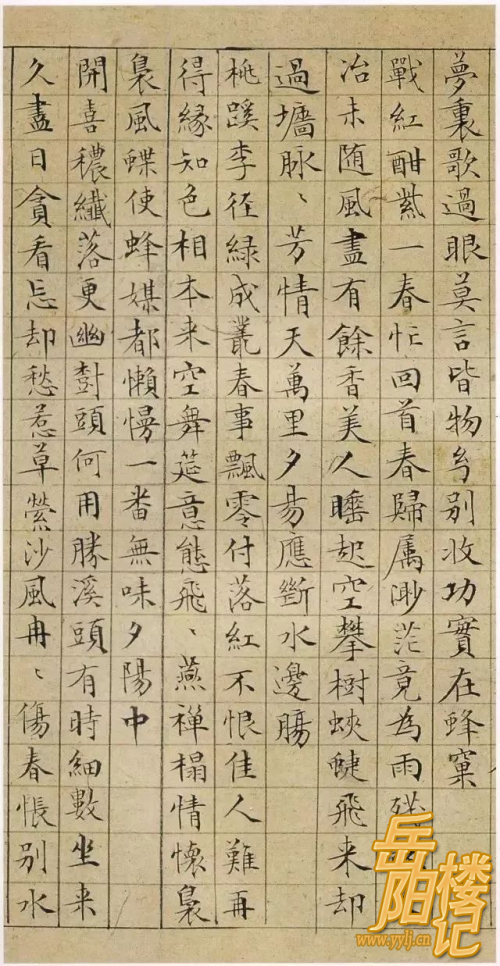 夢裏歌過眼莫言皆物幻別收功實在蜂窠
戰紅酣紫一春忙回首春歸屬渺茫竟為雨殘
冶未随風盡有餘香美人睡起空攀樹蛺蝶飛来却
過墻脉〻芳情天萬里夕昜應斷水邊腸
桃蹊李徑緑成叢春事飄零付落紅不恨佳人難再
得緣知色相本来空舞筵意態飛〻燕禪榻情懷裊
裊風蝶使蜂媒都懶慢一番無味夕陽中
開喜穠纖落更幽樹頭何用勝溪頭有時細數坐来
久盡日貪看忘却愁惹草縈沙風冉〻傷春悵别水
岳阳楼记
www.yylj.cn